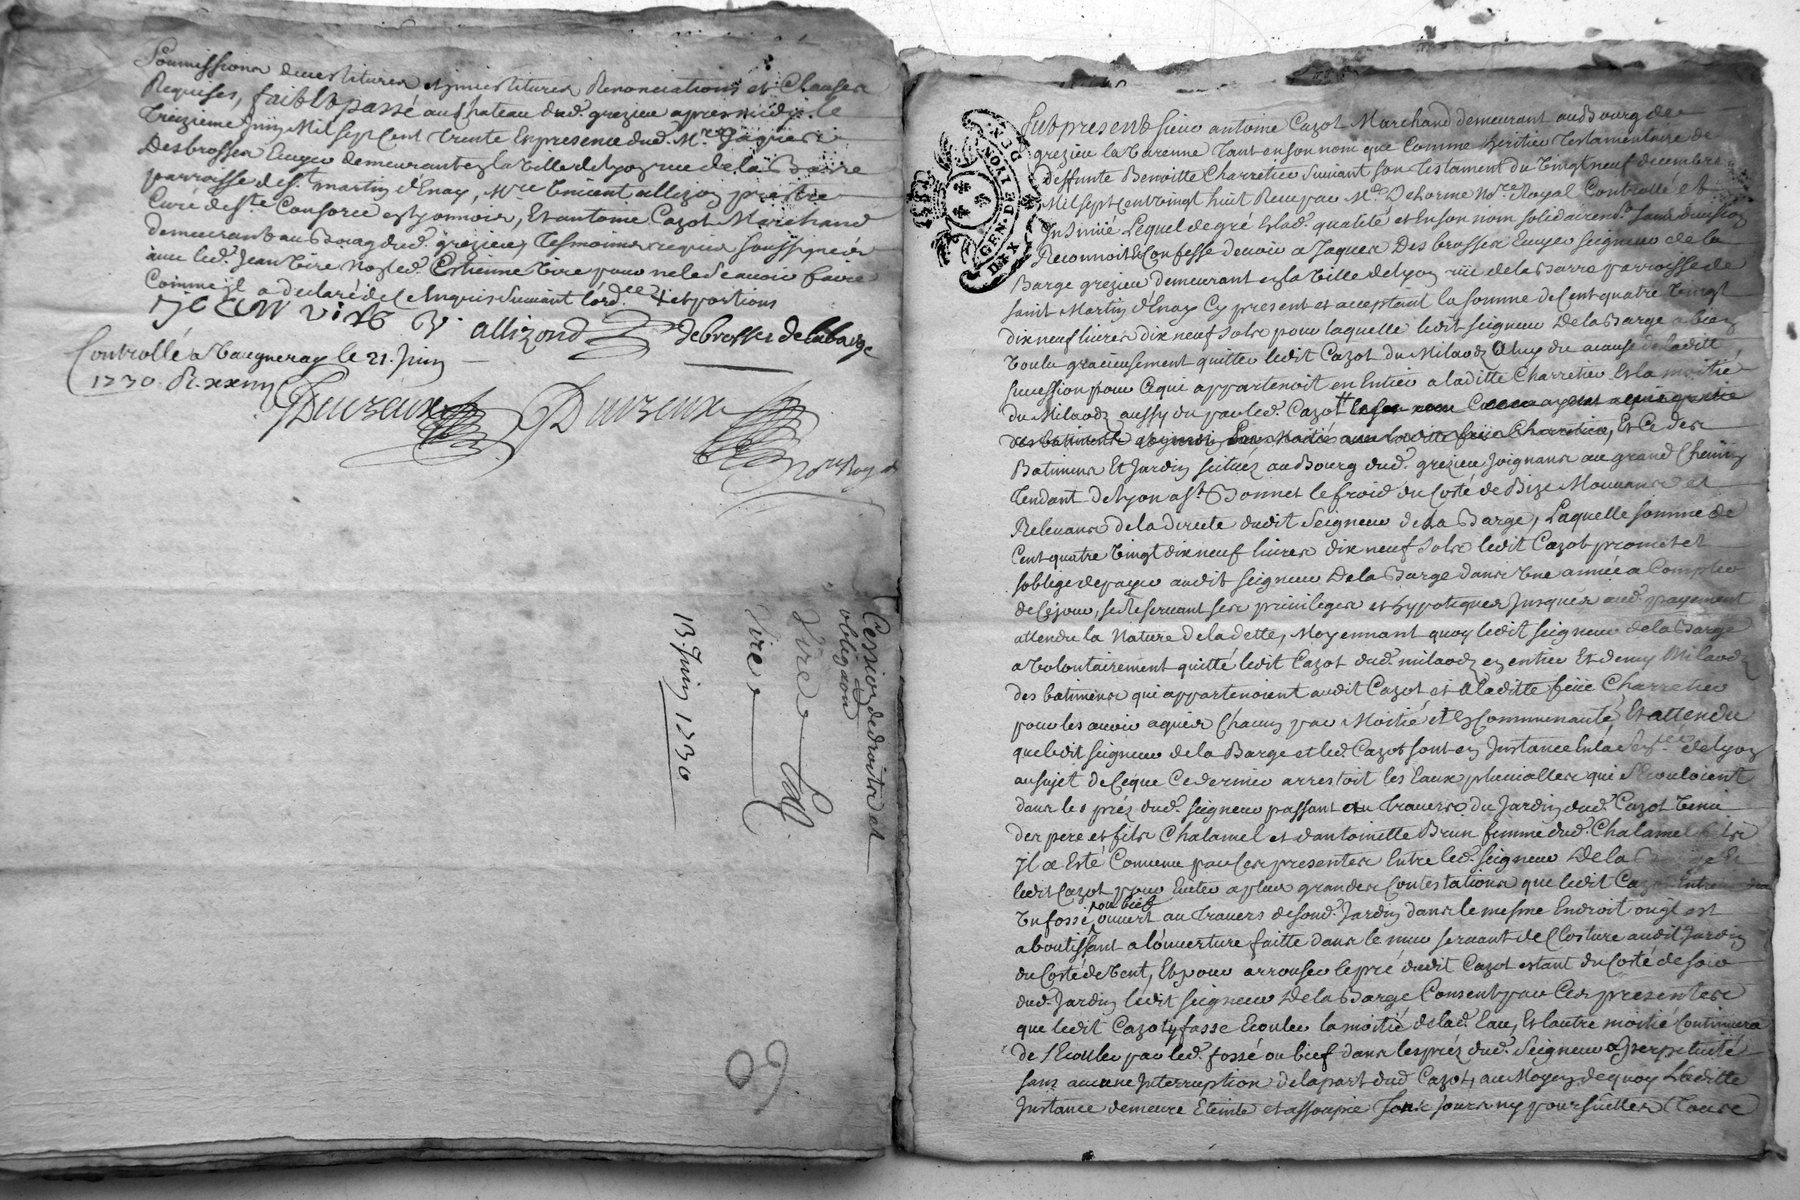 Soumissions devestitures et jnvestitures Renonciations et Clauses
Requises, fait et passé au chateau dud. grezieu apres midy le
Treizieme juin Mil sept cent trente En presence dud. Mre Jaques
Desbrosses Ecuyer demeurant en la Ville de Lyon rue de la Barre
parroisse de St. martin d'Enay, Mre Vincent allizon prestre
Curé de Ste Consorce en Lyonnois, Et antoine Cazot Marchand
demeurant au Bourg dud. grezieu, Tesmoins requis soussignés
avec led. Jean Vire non led. Estienne Vire pour ne le scavoir faire
Comme jl a declaré de ce Enquis suivant lord.ce
allizond debrosses delabarge
Controllé a Vaugneray le 21. Juin
1730. R.
Duvreux Duvreux
no.re Royal
Cession de droits et
obligaon
Vire
Vire
13 Juin 1730
GEN. DE LYON
DEN
DIX
Fut present sieur antoine Cazot Marchand demeurant au Bourg de
grezieu la Varenne Tant en son nom que Comme heritier Testamentaire de
deffunte Benoitte Charretier suivant son Testament du Vingt neuf decembre
Mil sept cent vingt huit Receu par Me. Delorme No.re Royal Controllé et
Insinué Lequel de gré Esd. qualités et En son nom solidairem.t sans division
Reconnoit Et Confesse devoir a Jaques Desbrosses Ecuyer seigneur de la
Barge grezieu demeurant en la Ville de Lyon rüe de la Barre parroisse de
saint Martin d'Enay Cy present et acceptant la somme de Cent quatre Vingt
dix neuf livres dix neuf sols pour laquelle ledit seigneur De la Barge a bien
Voulu gracieusement quitter ledit Cazot du Milaod a luy du a cause de laditte
succession pour Ce qui appartenoit en Entier a laditte Charretier Et la moitié
du Milaod aussy du par led. Cazot
Et Ce des
Batimens Et Jardin scitués au Bourg dud. grezieu Joignans au grand Chemin
Tendant de Lyon a St. Bonnet le froid du Costé de Bize Mouvans et
Relevans de la Directe dudit Seigneur de La Barge, Laquelle somme de
Cent quatre Vingt dix neuf livres dix neuf sols ledit Cazot promet et
soblige de payer audit seigneur De la Barge dans Une année a Compter
de Ce jour, se Reservant ses privileges et hypoteques Jusques aud. payement
attendu la Nature de la dette, Moyennant quoy ledit seigneur de la Barge
a Volontairement quitté ledit Cazot dud. milaod en entier Et demy Milaod
des batimens qui appartenoient audit Cazot et a laditte feüe Charretier
pour les avoir aquis Chacun par Moitié et en Communauté, Et attendu
que ledit seigneur de la Barge et led. Cazot sont en Instance En la Sen.cée de Lyon
au sujet de Ceque Ce dernier arrestoit les Eaux pluvialles qui S'Ecouloient
dans les prés dud. seigneur passant au Travers du Jardin dud. Cazot Venu
des pere et fils Chalamel et d'antoinette Brun femme dud. Chalamel fils
jl a Esté Convenu par Ces presentes Entre led. seigneur De la Barge Et
ledit Cazot pour Eviter a plus grandes Contestations que ledit Cazot
ou bief
Un fossé ouvert au Travers de sond. Jardin dans le mesme Endroit ou jl est
aboutissant a l'ouverture faitte dans le mur servant de Closture audit Jardin
du Costé de Vent, Et pour arrouser le pré dudit Cazot estant du Costé de soir
dud. Jardin ledit seigneur De la Barge Consent par Ces presentes
que ledit Cazot y fasse Ecouler la moitié de lad. Eau, Et l'autre moitié Continuera
de s'Ecouler par led. fossé ou bief dans les prés dud. Seigneur a perpetuité
sans aucune Interruption de la part dud. Cazot, au Moyen de quoy Laditte
Instance demeure Eteinte et assoupie sans jours ny poursuittes Tous